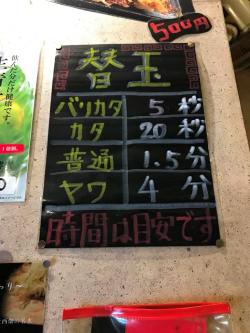 500円
替玉
バリカタ 5秒
カタ 20秒
普通 1.5分
ヤワ 4分
時間は目安です